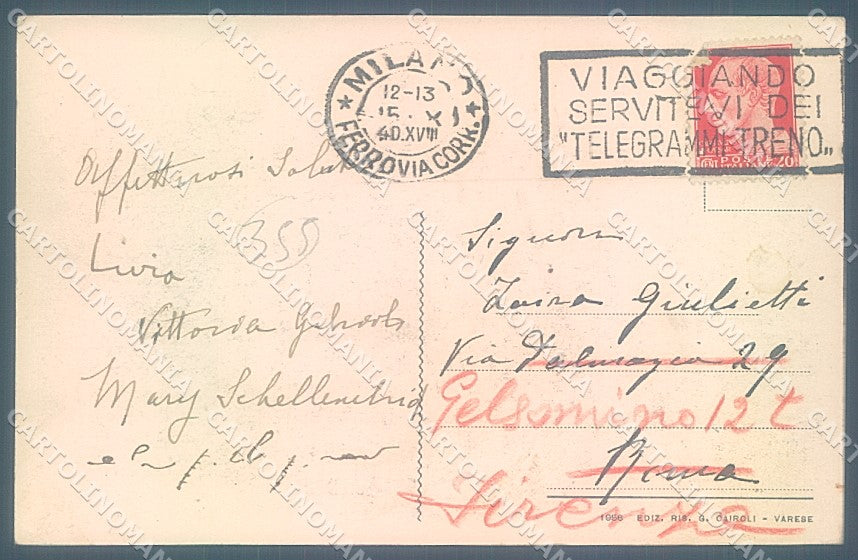 MILANO
12-13
15 · XI
40.XVIII
FERROVIA CORR.
VIAGGIANDO
SERVITEVI DEI
"TELEGRAMMI TRENO"
POSTE
ITALIANE
20
Affettuosi Saluti
Livia
Vittoria
Mary
355
Signora
Zaira Giulietti
Via Dalmazia 29
Gelsomino 12 t
Roma
Firenze
1086 EDIZ. RIS. G. CAIROLI - VARESE
CARTOLINOMANIA